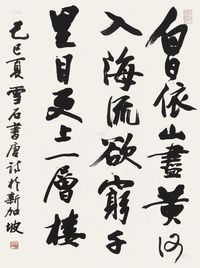 白日依山盡黃河
入海流欲窮千
里目更上一層樓
己巳夏雪石書唐詩於新加坡